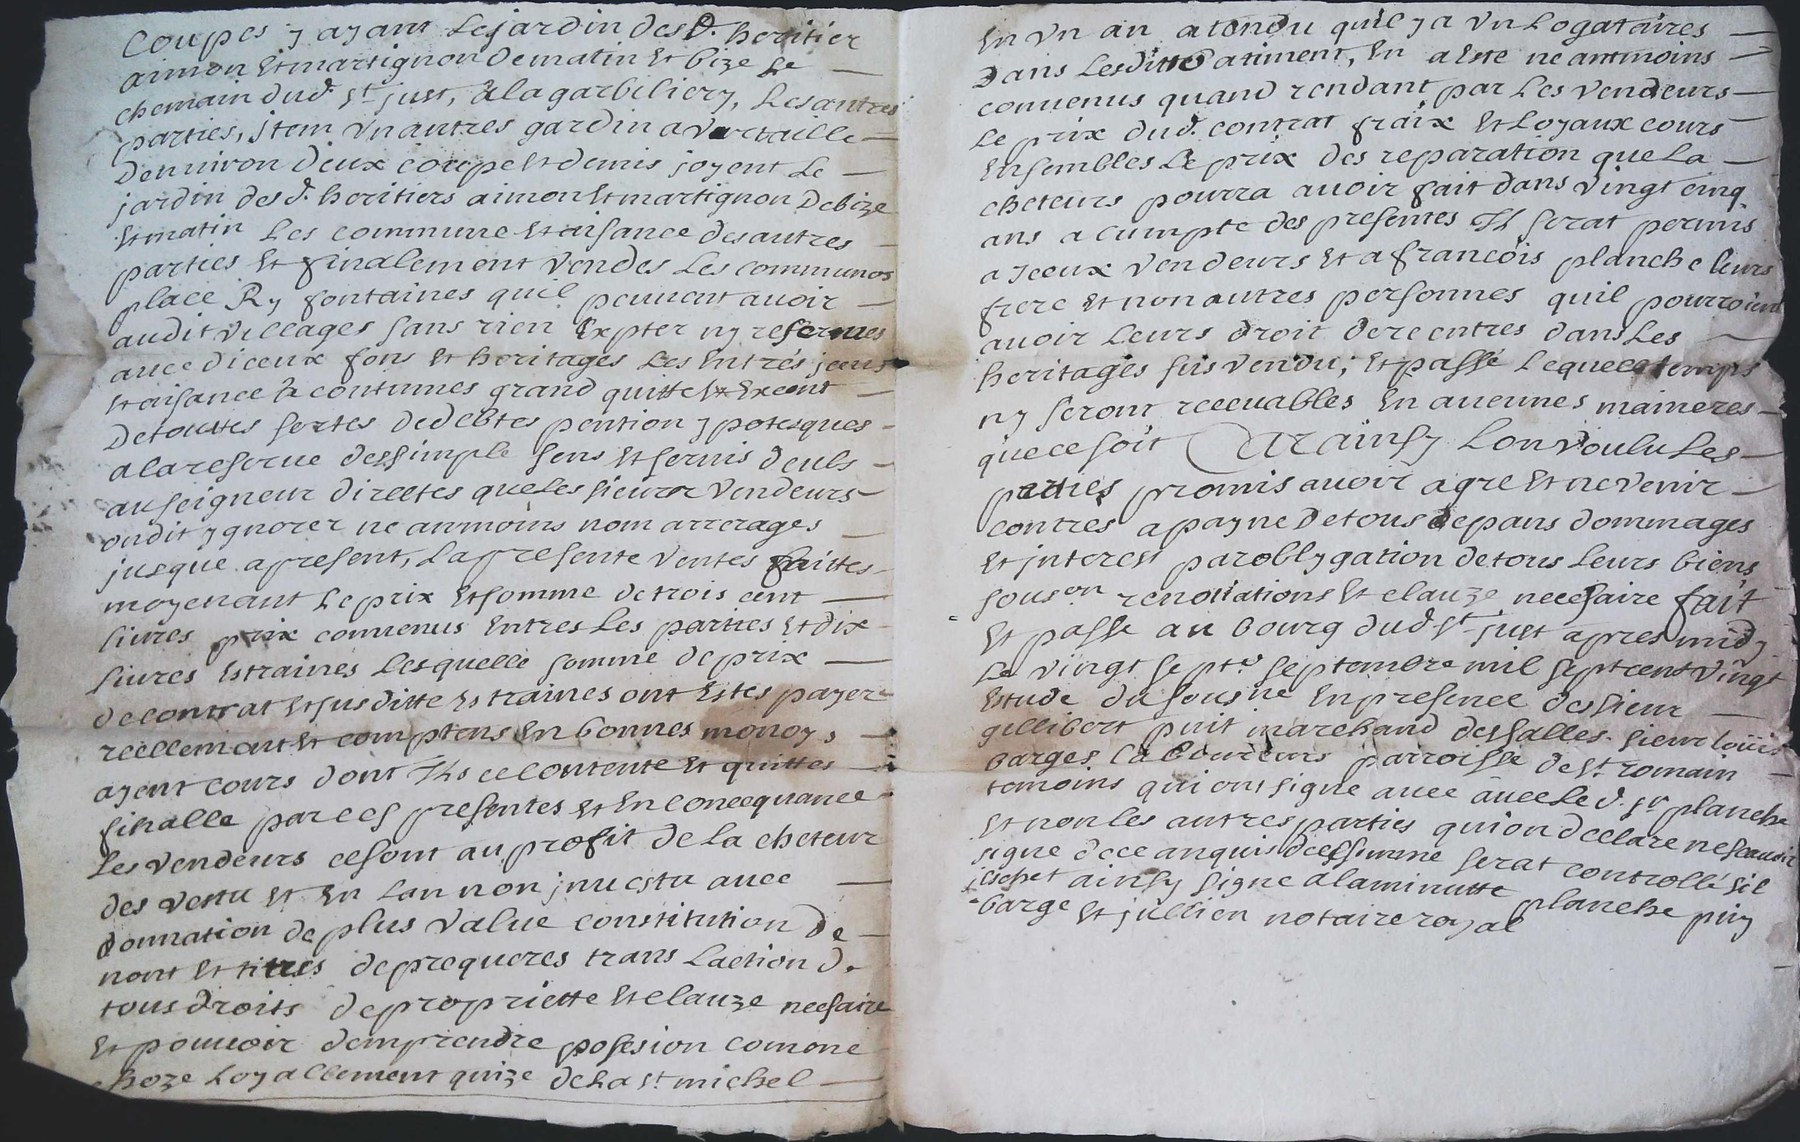 Coupes y ayant Lejardin des d. heritier
aimon Et martignon dematin Et bize Le
chemain dud. St just, Alagarbiliery, Lesautres
parties, jtem Vn autres gardin a Vertaille
Denuiron deux coupe Et demis joyent Le
jardin des d. heritiers aimon Et martignon Debize
Et matin Les commune Et aisance desautres
parties Et finalement Vendes Les communos
place Ry fontaines quil peuuent auoir
audit Villages sans rien Expter ny reserues
auec diceux fons Et heritages Les Entrés jssus
Et aisance & coutumes grand quitte Et Exeent
Detouttes sortes dedebtes pention ypotesques
alareserue dessimple sens Et seruis deuls
auseigneur directes queles sieurs Vendeurs
ondit ygnorer ne anmoins nom arrerages
jusque apresent, Lapresente Ventes faittes
moyenant Leprix Et somme de trois cent
liures prix conuenus Entres Les parties Et dix
liures Estraines Lesquelle somme deprix
decontrat Et susditte Estraines ont Estes payer
reellemant Et comptens En bonnes monoy,
ayent cours dont Ils ce contente Et quittes
finalle par ces presentes Et En Conecquance
Les Vendeurs cesont au profit de La cheteur
des Vestu Et En Lan non jnuestu auec
donnation de plus Value constitution de
nont Et titres deprequeres trans Laction de
tous droits depropriette Et clauze necsaire
Et pouuoir demprendre posesion comone
choze Loyallement quize de La St michel
En Vn an atendu quil y a Vn Logataires
Dans Lesditte batiment, En a Este ne antmoins
conuenus quand rendant par Les Vendeurs
Le prix dud. contrat fraix Et Loyaux cours
Ensembles Le prix des reparation que La
cheteurs pourra auoir fait dans Vingt cinq
ans a cumpte des presentes Il serat permis
a Jceux Vendeurs Et a francois planche leurs
frere Et non autres personnes quil pourroient
auoir Leurs droit dereentres dans Les
heritages sus Vendu, Et passé Lequel temps
ny seront receuables En aucunes maineres
que ce soit Et ainsy Lon Voulu Les
parties promis auoir agre Et ne Venir
contres apayne Detous depans dommages
Et jnterest paroblygation detous Leurs biens
sous on renontiations Et clauze necesaire fait
Et passe au bourg dud St just apres midy
Le Vingt sept septembre mil sept cent Vingt
Estude du sous ne En presence des sieur
gillibert puit marchand des salles sieur Louis
barges Laboureurs parroisse de St romain
temoins qui ont signe auec auec Le d. sr planche
Et non les autres parties quion declare ne scauoir
signe de ce anquis serat controllé sil
jlechet ainsy signe alaminutte planche puy
barge Et jullien notaire royal